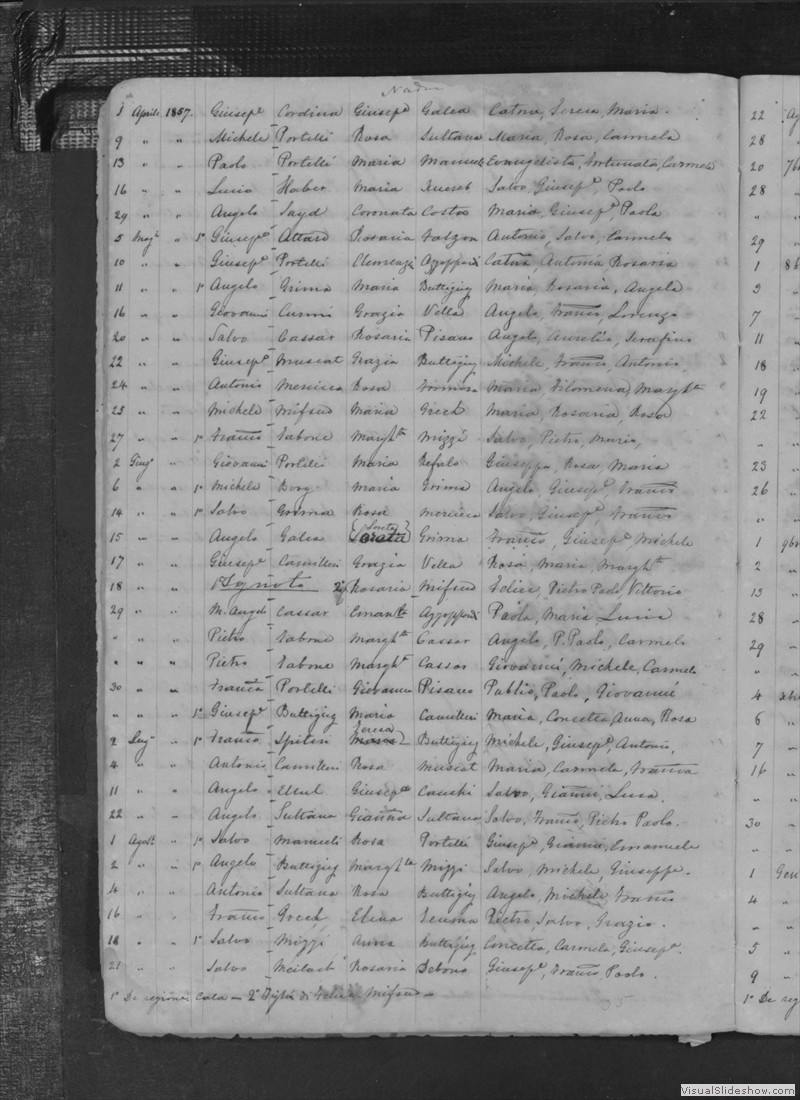 Nadur
1 Aprile 1857. Giusepe Cordina Giuseppa Galea Catna, Teresa, Maria.
9 " " Michele Portelli Rosa Sultana Maria, Rosa, Carmela
13 " " Paolo Portelli Maria Manueli Evangelista, Fortunata, Carmela
16 " " Luca Haber Maria Salvo, Giusepe, Paolo
29 " " Angelo Sayd Coronata Costa Maria, Giusepa, Paola
5 Magio " 1° Giusepe Attard Rosaria Falzon Antonio, Salvo, Carmelo
10 " " Giusepe Portelli Clemenza Azzopardi Catna, Antonia Rosaria
11 " " 1° Angelo Grima Maria Buttigieg Maria Rosaria, Angela
16 " " Giovanni Curmi Grazia Vella Angelo, Franco, Lorenzo
20 " " Salvo Cassar Rosaria Pisano Angelo, Aurelio, Serafino
22 " " Giusepe Muscat Grazia Buttigieg Michele, Franco, Antonio
24 " " Antonio Mercieca Rosa Formosa Maria, Filomena, Marghta
25 " " Michele Mifsud Maria Grech Maria, Rosaria, Rosa
27 " " 1° Franco Tabone Marghta Mizzi Salvo, Pietro, Mario,
2 Giugo " Giovanni Portelli Maria Refalo Giuseppa, Rosa, Maria
6 " " 1° Michele Borg Maria Grima Angelo, Giusepe, Franco
14 " " 1° Salvo Grima Rosa Mercieca Salvo, Giusepe, Franco
15 " " Angelo Galea Loreta Grima Franco, Giusepe, Michele
17 " " Giusepe Camilleri Grazia Vella Rosa, Maria, Marghta.
18 " " Ignoto 2° Rosaria Mifsud Felice, Pietro Paolo, Vittorio
29 " " M. Angelo Cassar Emanla Azzopardi Paola, Maria Luisa
" " " Pietro Tabone Marghta Cassar Angelo, P. Paolo, Carmelo
" " " Pietro Tabone Marghta Cassar Giovanni, Michele, Carmelo
30 " " Franco Portelli Giovanna Pisano Publio, Paolo, Giovanni
" " " 1° Giusepe Buttigieg Maria Camilleri Maria, Concetta, Anna, Rosa
2 Lugo " 1° Franco Spiteri Teresa Buttigieg Michele, Giusepe, Antonio,
4 " " Antonio Camilleri Rosa Muscat Maria, Carmela, Franca
11 " " Angelo Ellul Giusepa Caruki Salvo, Gianni, Luca.
22 " " Angelo Sultana Gianna Sultana Salvo, Franco, Pietro Paolo.
1 Agosto " 1° Salvo Manueli Rosa Portelli Giusepe, Gianni, Emanuele
2 " " 1° Angelo Buttigieg Marghta Mizzi Salvo, Michele, Giuseppe.
4 " " Antonio Sultana Rosa Buttigieg Angelo, Michele, Franco
16 " " Franco Grech Elena Pietro, Salvo, Grazio.
18 " " 1° Salvo Mizzi Anna Buttigieg Concetta, Carmela, Giusepa.
21 " " Salvo Meilach Rosaria Debono Giusepe, Franco Paolo.
1° De regione Cala — 2° Figlia di Felice Mifsud —
22 Ag
28 "
20 7b
28 "
" "
29 "
1 8b
3 "
7 "
11 "
18 "
19 "
22 "
" "
23 "
26 "
1 9br
2 "
13 "
28 "
29 "
" "
4 Xbr
6 "
7 "
16 "
" "
30 "
" "
1 Gen
4 "
" "
5 "
9 "
1° De reg
VisualSlideshow.com